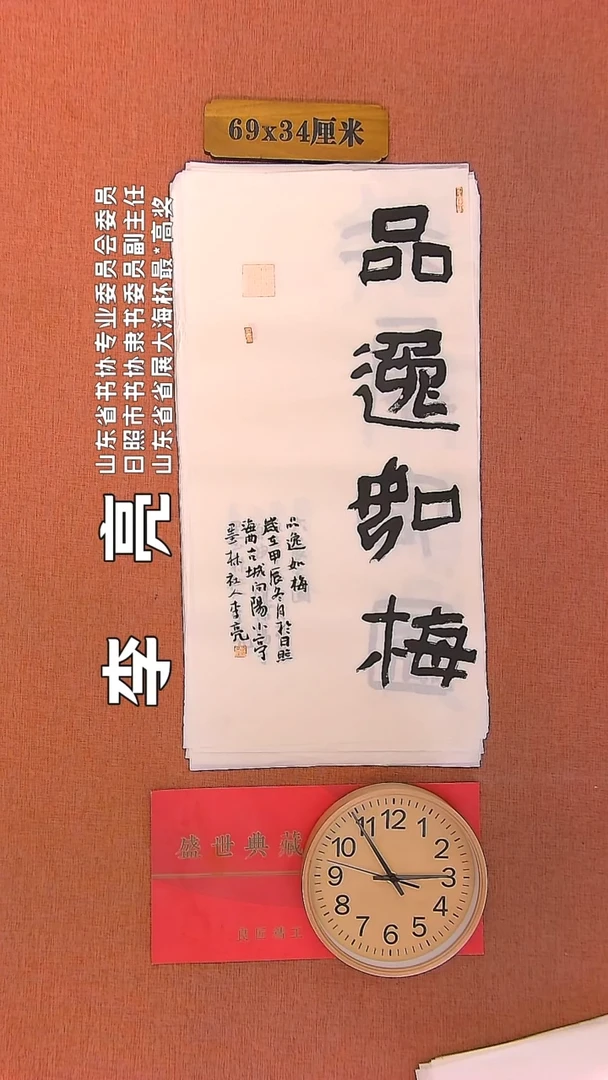 69x34厘米
品逸如梅
品逸如梅
歲在甲辰冬月於日照
海西古城向陽小亭
墨林社人李亮
李亮
山东省书协专业委员会委员
日照市书协隶书委员副主任
山东省省展大海杯最*高奖
盛世典藏
12
1
2
3
4
5
6
7
8
9
10
11